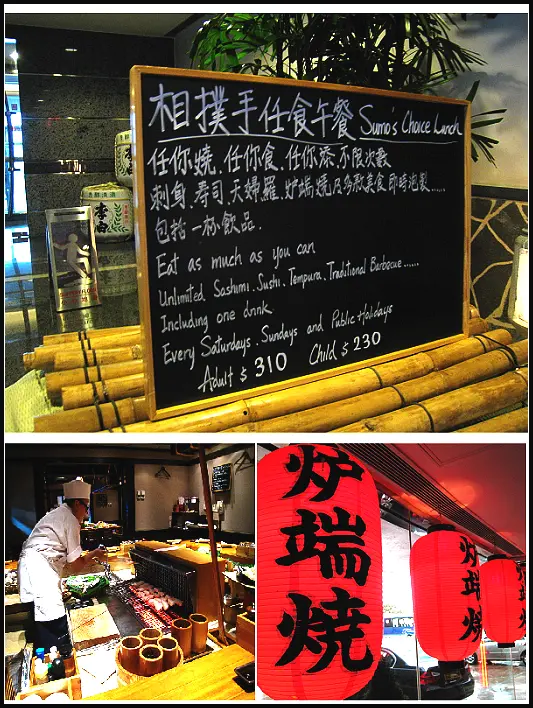 相撲手任食午餐 Sumo's Choice Lunch
任你燒、任你食、任你添、不限次數
刺身、寿司、天婦羅、炉端燒及多款美食即時泡製......
包括一杯飲品.
Eat as much as you can
Unlimited Sashimi, Sushi, Tempura, Traditional Barbecue......
Including one drink
Every Saturdays, Sundays and Public Holidays
Adult $ 310 Child $ 230
炉端燒
炉端燒
炉端